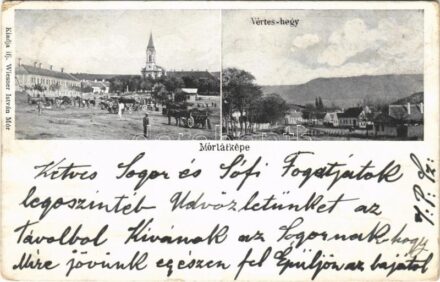 Vértes-hegy
Kiadja ifj. Wiesner István Mór
Mórlátképe
Ketves Sogor és Sófi Fogatjátok
legoszinteb Udvözletünket az
Távolbol Kivánok az Sogornak hogy
Mire jövünk egészen fel Epüljön az bajatol